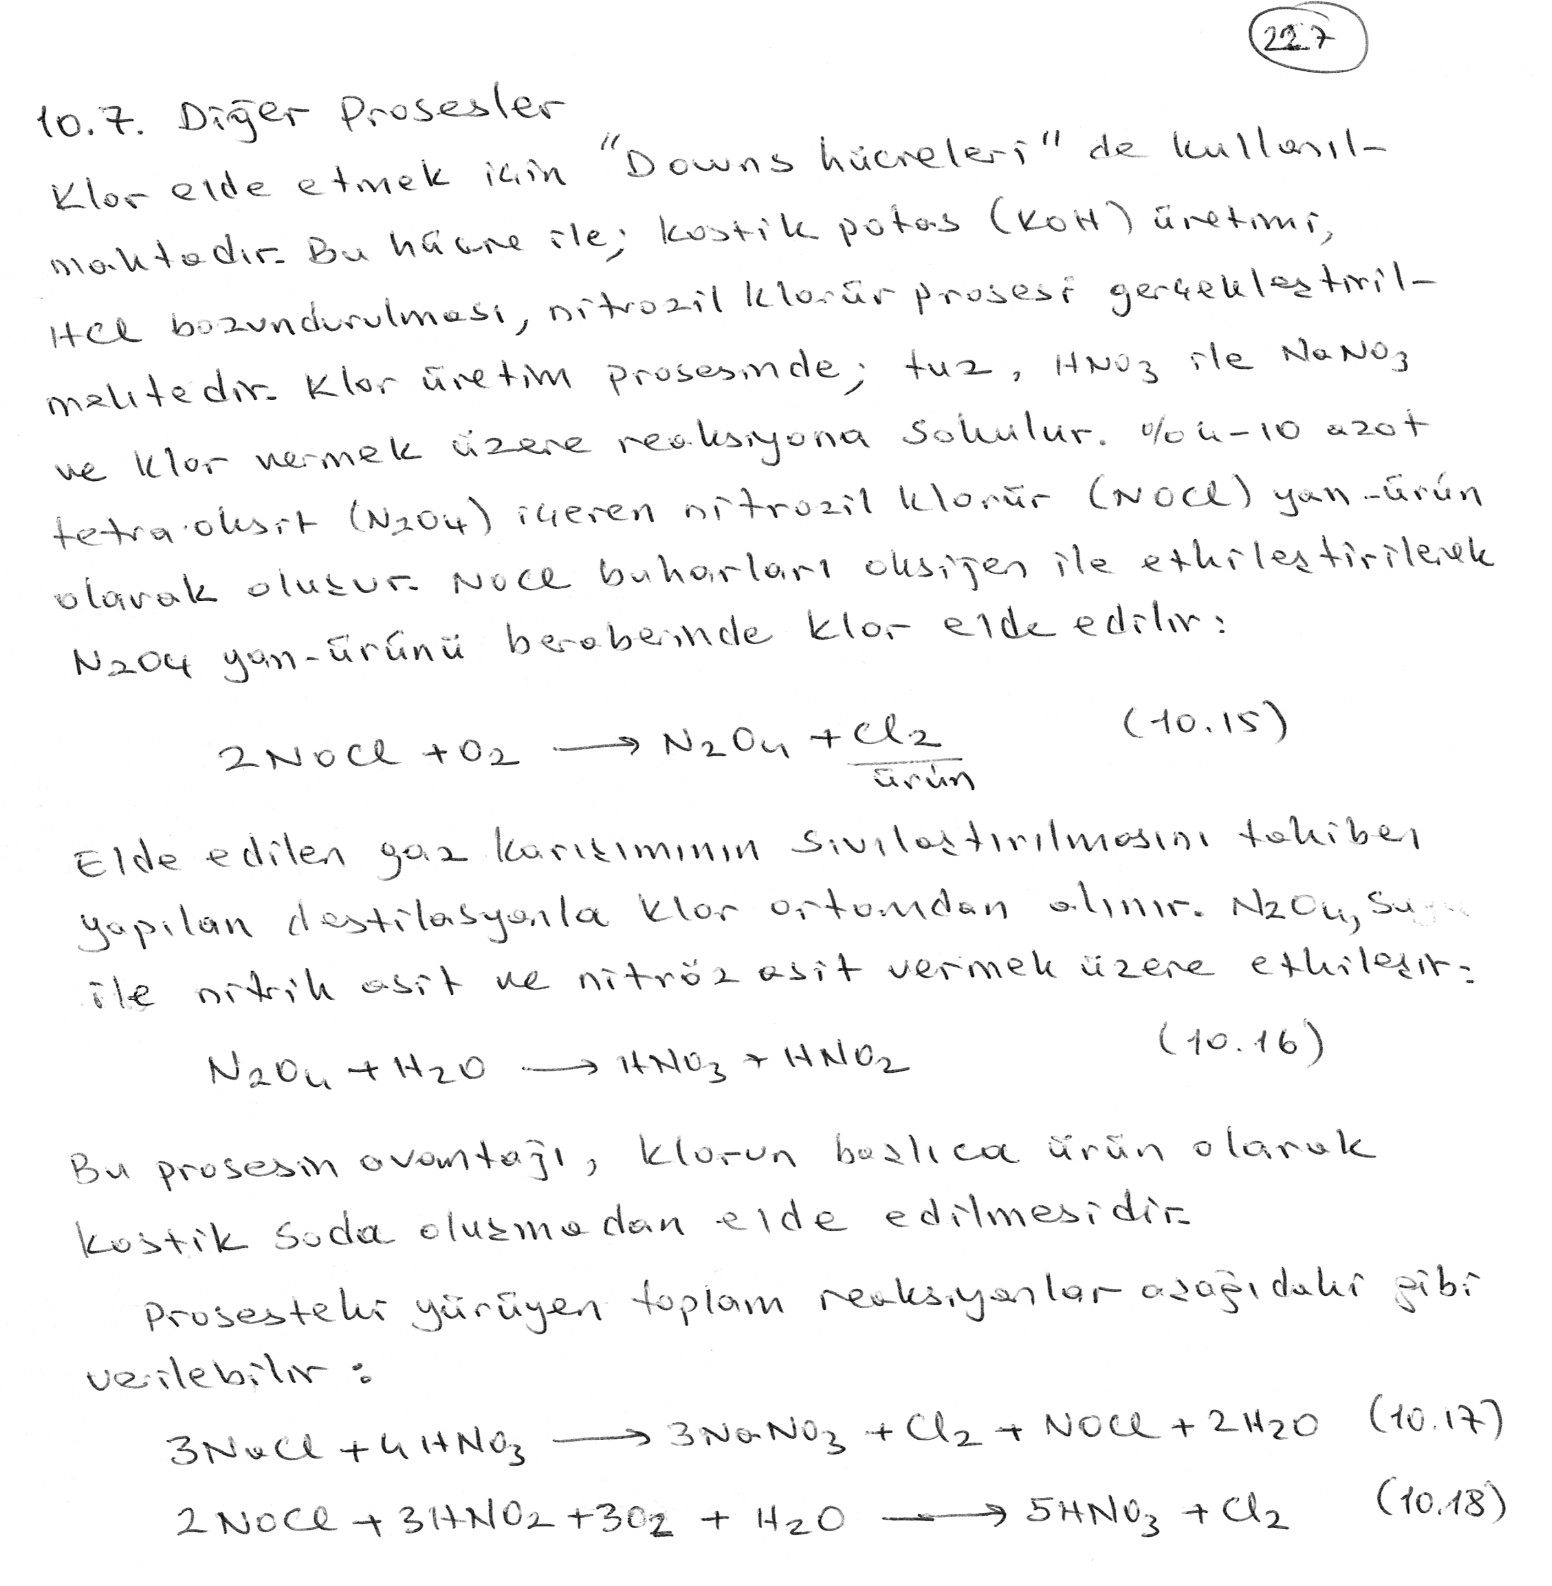 227
10.7. Diğer Prosesler
Klor elde etmek için "Downs hücreleri" de kullanıl-
maktadır. Bu hücre ile; kostik potas (KOH) üretimi,
HCl bozundurulması, nitrozil klorür prosesi gerçekleştiril-
mektedir. Klor üretim prosesinde; tuz, HNO3 ile NaNO3
ve klor vermek üzere reaksiyona sokulur. %4-10 azot
tetra oksit (N2O4) içeren nitrozil klorür (NOCl) yan-ürün
olarak oluşur. NOCl buharları oksijen ile etkileştirilerek
N2O4 yan-ürünü beraberinde klor elde edilir:
2NOCl + O2 → N2O4 + Cl2 (10.15)
ürün
Elde edilen gaz karışımının sıvılaştırılmasını takiben
yapılan destilasyonla klor ortamdan alınır. N2O4, su
ile nitrik asit ve nitröz asit vermek üzere etkileşir:
N2O4 + H2O → HNO3 + HNO2 (10.16)
Bu prosesin avantajı, klorun başlıca ürün olarak
kostik soda oluşmadan elde edilmesidir.
Prosesteki yürüyen toplam reaksiyonlar aşağıdaki gibi
verilebilir:
3NaCl + 4HNO3 → 3NaNO3 + Cl2 + NOCl + 2H2O (10.17)
2NOCl + 3HNO2 + 3O2 + H2O → 5HNO3 + Cl2 (10.18)